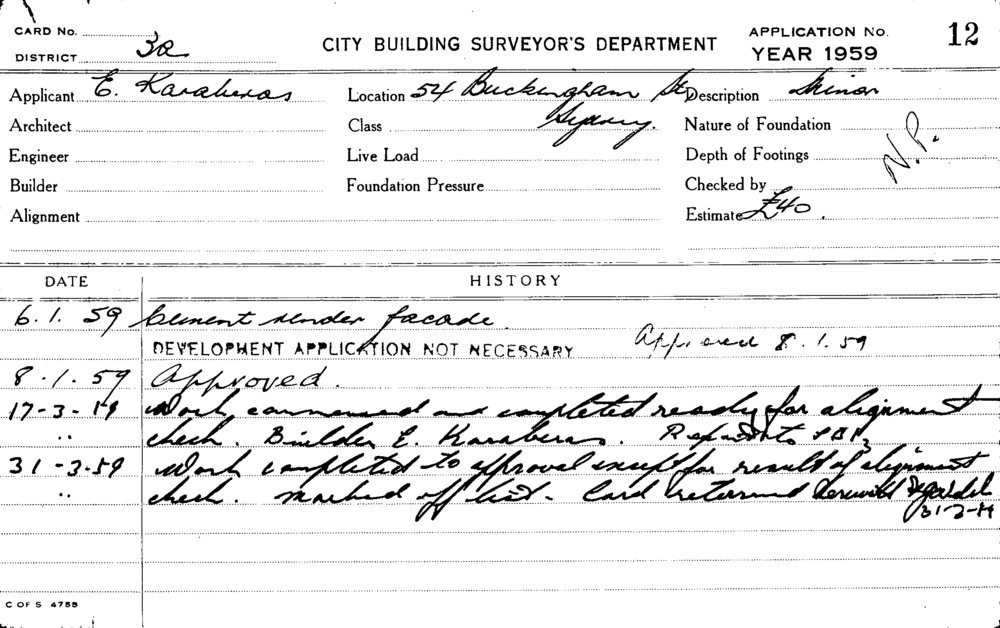 CARD No.
DISTRICT 3a
CITY BUILDING SURVEYOR'S DEPARTMENT
APPLICATION No. 12
YEAR 1959
Applicant E. Karaberas
Location 54 Buckingham St
Sydney.
Description Minor
Architect
Class
Nature of Foundation
Engineer
Live Load
Depth of Footings
N.P.
Builder
Foundation Pressure
Checked by
Alignment
Estimate £40.
DATE HISTORY
6.1.59 Cement render facade.
DEVELOPMENT APPLICATION NOT NECESSARY Approved 8.1.59
8.1.59 Approved.
17-3-59 Work commenced and completed ready for alignment
" check. Builder E. Karaberas. Report to
31-3-59 Work completed to approval except for result of alignment
" check. Marked off list. Card returned herewith
31-3-59
C OF S 4789